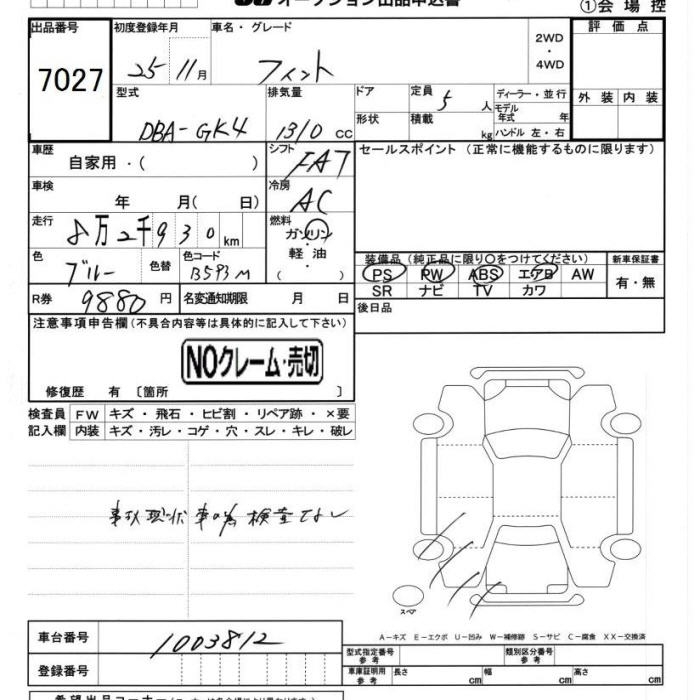 オークション出品申込書
①会場控
出品番号
7027
初度登録年月
25 11月
車名・グレード
フィット
2WD
・
4WD
評価点
外装 内装
型式
DBA-GK4
排気量
1310 cc
ドア
形状
定員
5人
積載
kg
ディーラー・並行
モデル年式 年
ハンドル 左・右
車歴
自家用・( )
シフト
FAT
セールスポイント (正常に機能するものに限ります)
車検
年 月( 日)
冷房
AC
走行
8万2千930km
燃料
ガソリン
軽油
( ・ )
色
ブルー
色替
色コード
B593M
装備品 (純正品に限り○をつけてください)
PS PW ABS エアB AW
SR ナビ TV カワ
新車保証書
有・無
R券
9880円
名変通知期限 月 日
後日品
注意事項申告欄(不具合内容等は具体的に記入して下さい)
NOクレーム・売切
修復歴 有 〔箇所 〕
検査員
記入欄
FW キズ・飛石・ヒビ割・リペア跡・×要
内装 キズ・汚レ・コゲ・穴・スレ・キレ・破レ
事故現状車の為検査なし
スペア
A-キズ E-エクボ U-凹み W-補修跡 S-サビ C-腐食 XX-交換済
車台番号
1003812
登録番号
型式指定番号
参考
類別区分番号
参考
車庫証明用
参考
長さ cm 幅 cm 高さ cm
希望出品コーナー